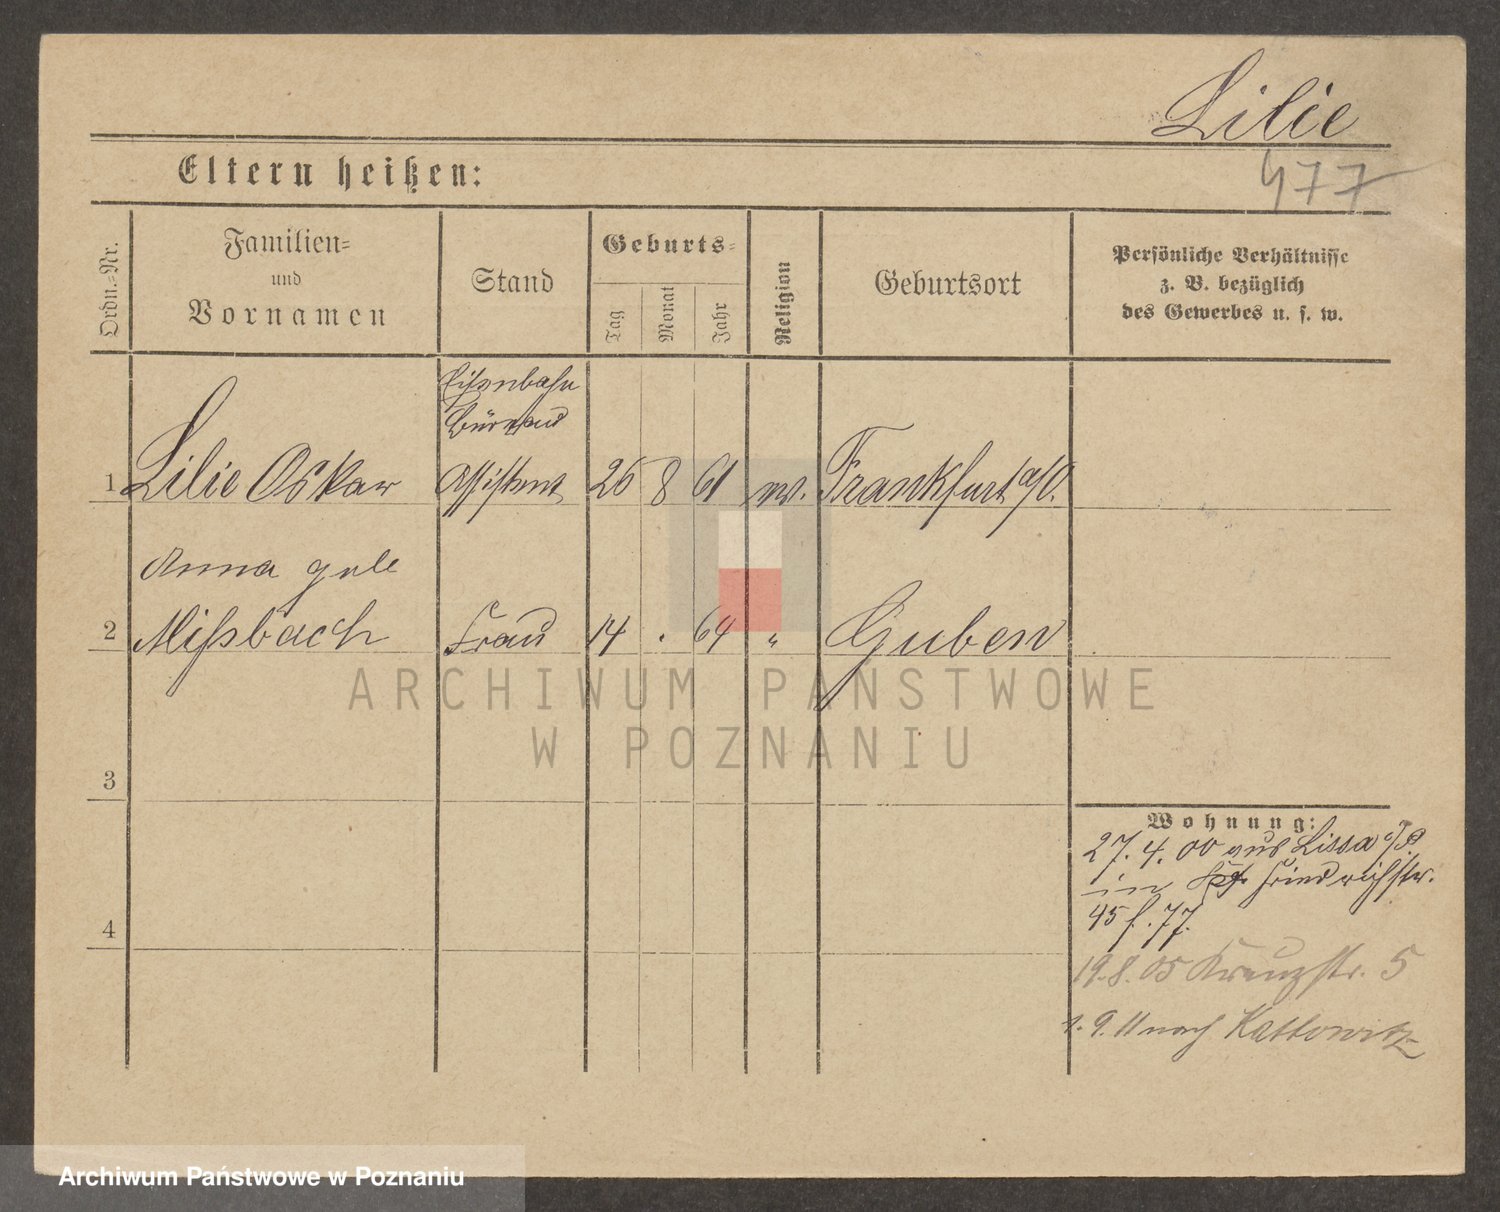 Lilie
477
Eltern heißen:
Ordn.-Nr.
Familien-
und
Vornamen
Stand
Geburts-
Tag
Monat
Jahr
Religion
Geburtsort
Persönliche Verhältnisse
z. B. bezüglich
des Gewerbes u. s. w.
Eisenbahn
Büreau
1 Lilie Oskar Assistent 26 8 61 Frankfurt a/O.
Anna geb
2 Mißbach Frau 14 . 64 " Guben
ARCHIWUM PAŃSTWOWE
W POZNANIU
3
Wohnung:
27. 4. 00 aus Lissa i/P.
in Friedrichstr.
4
45 f. 77.
19.8.05 Kreuzstr. 5
1. 9. 11 nach Kattowitz
Archiwum Państwowe w Poznaniu